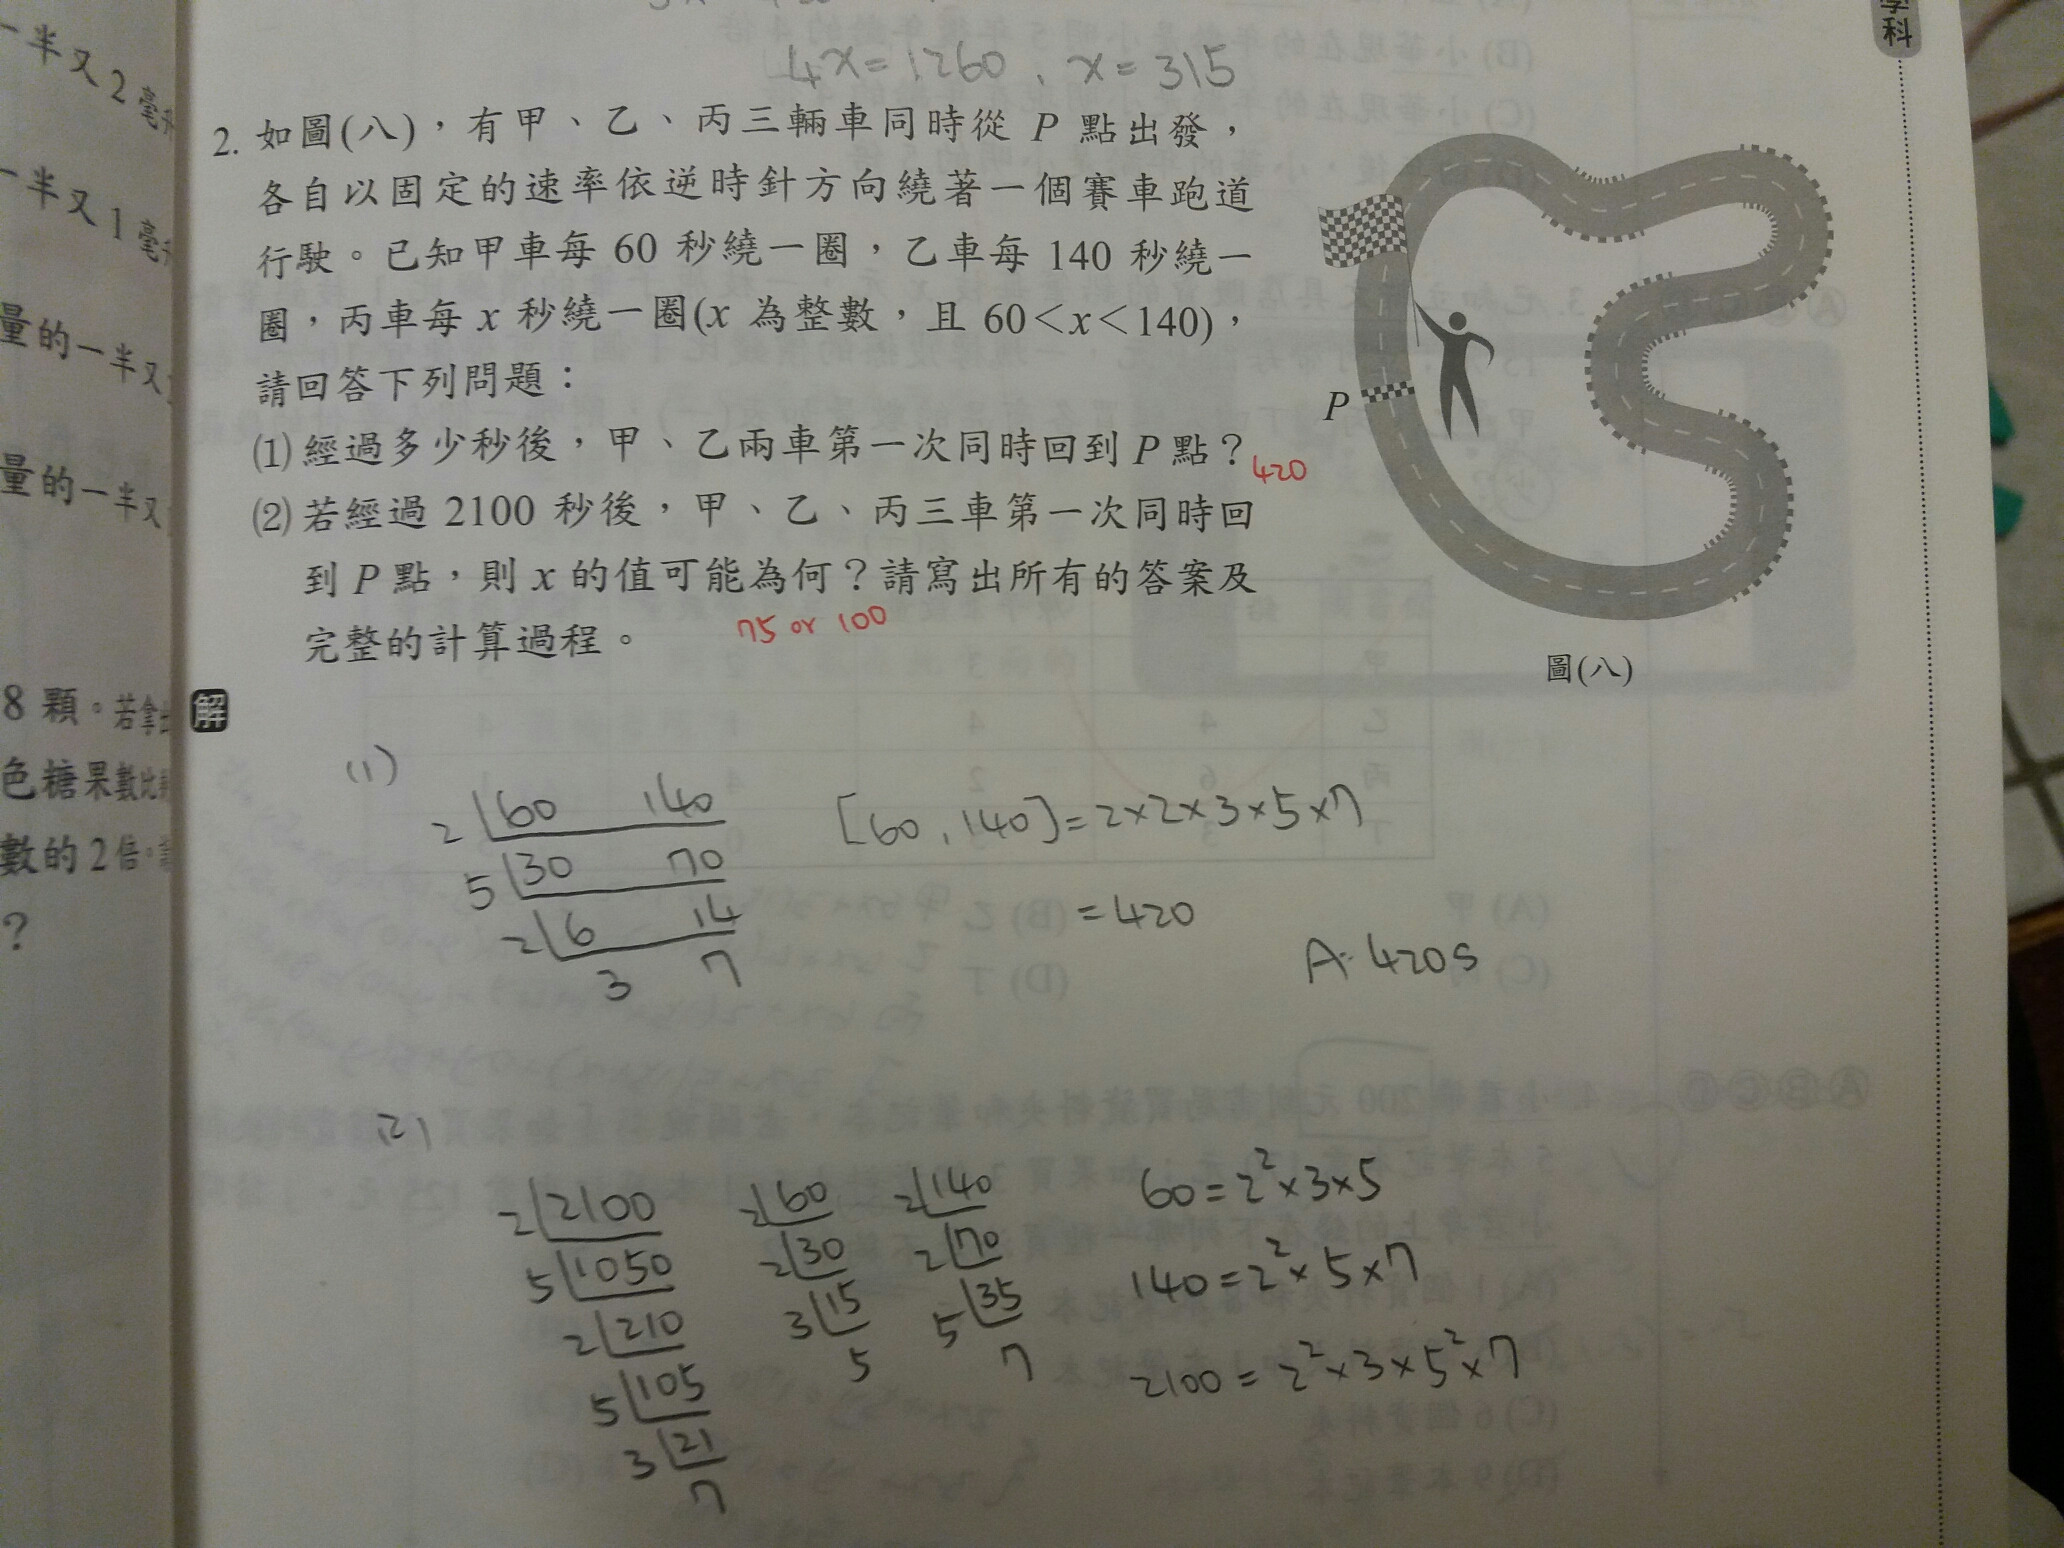 學科
一半又2毫升
一半又1毫升
量的一半又
量的一半又
8 顆。若拿出
色糖果數比
數的2倍。
?
4x=1260, x=315
2. 如圖(八),有甲、乙、丙三輛車同時從 P 點出發,
各自以固定的速率依逆時針方向繞著一個賽車跑道
行駛。已知甲車每 60 秒繞一圈,乙車每 140 秒繞一
圈,丙車每 x 秒繞一圈(x 為整數,且 60<x<140),
請回答下列問題:
(1) 經過多少秒後,甲、乙兩車第一次同時回到 P 點? 420
(2) 若經過 2100 秒後,甲、乙、丙三車第一次同時回
到 P 點,則 x 的值可能為何?請寫出所有的答案及
完整的計算過程。 75 or 100
P
圖(八)
解
(1)
2 60 140
5 30 70
2 6 14
3 7
[60, 140]=2×2×3×5×7
=420
A: 420s
(2)
2 2100 2 60 2 140
5 1050 2 30 2 70
2 210 3 15 5 35
5 105 5 7
3 21
7
60=2²×3×5
140=2²×5×7
2100=2²×3×5²×7